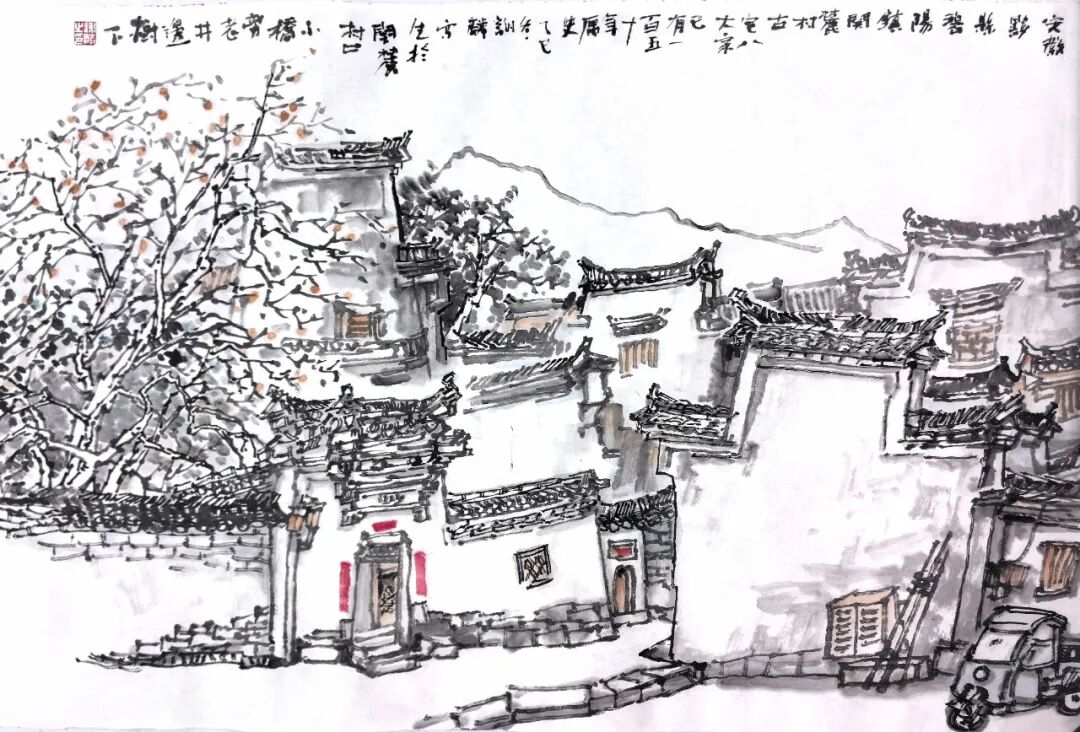 安徽黟縣碧陽鎮関麓村古宅八大家已有一百五十年厯史乙巳冬訓麟寫生於関麓村口小橋旁老井邊樹下